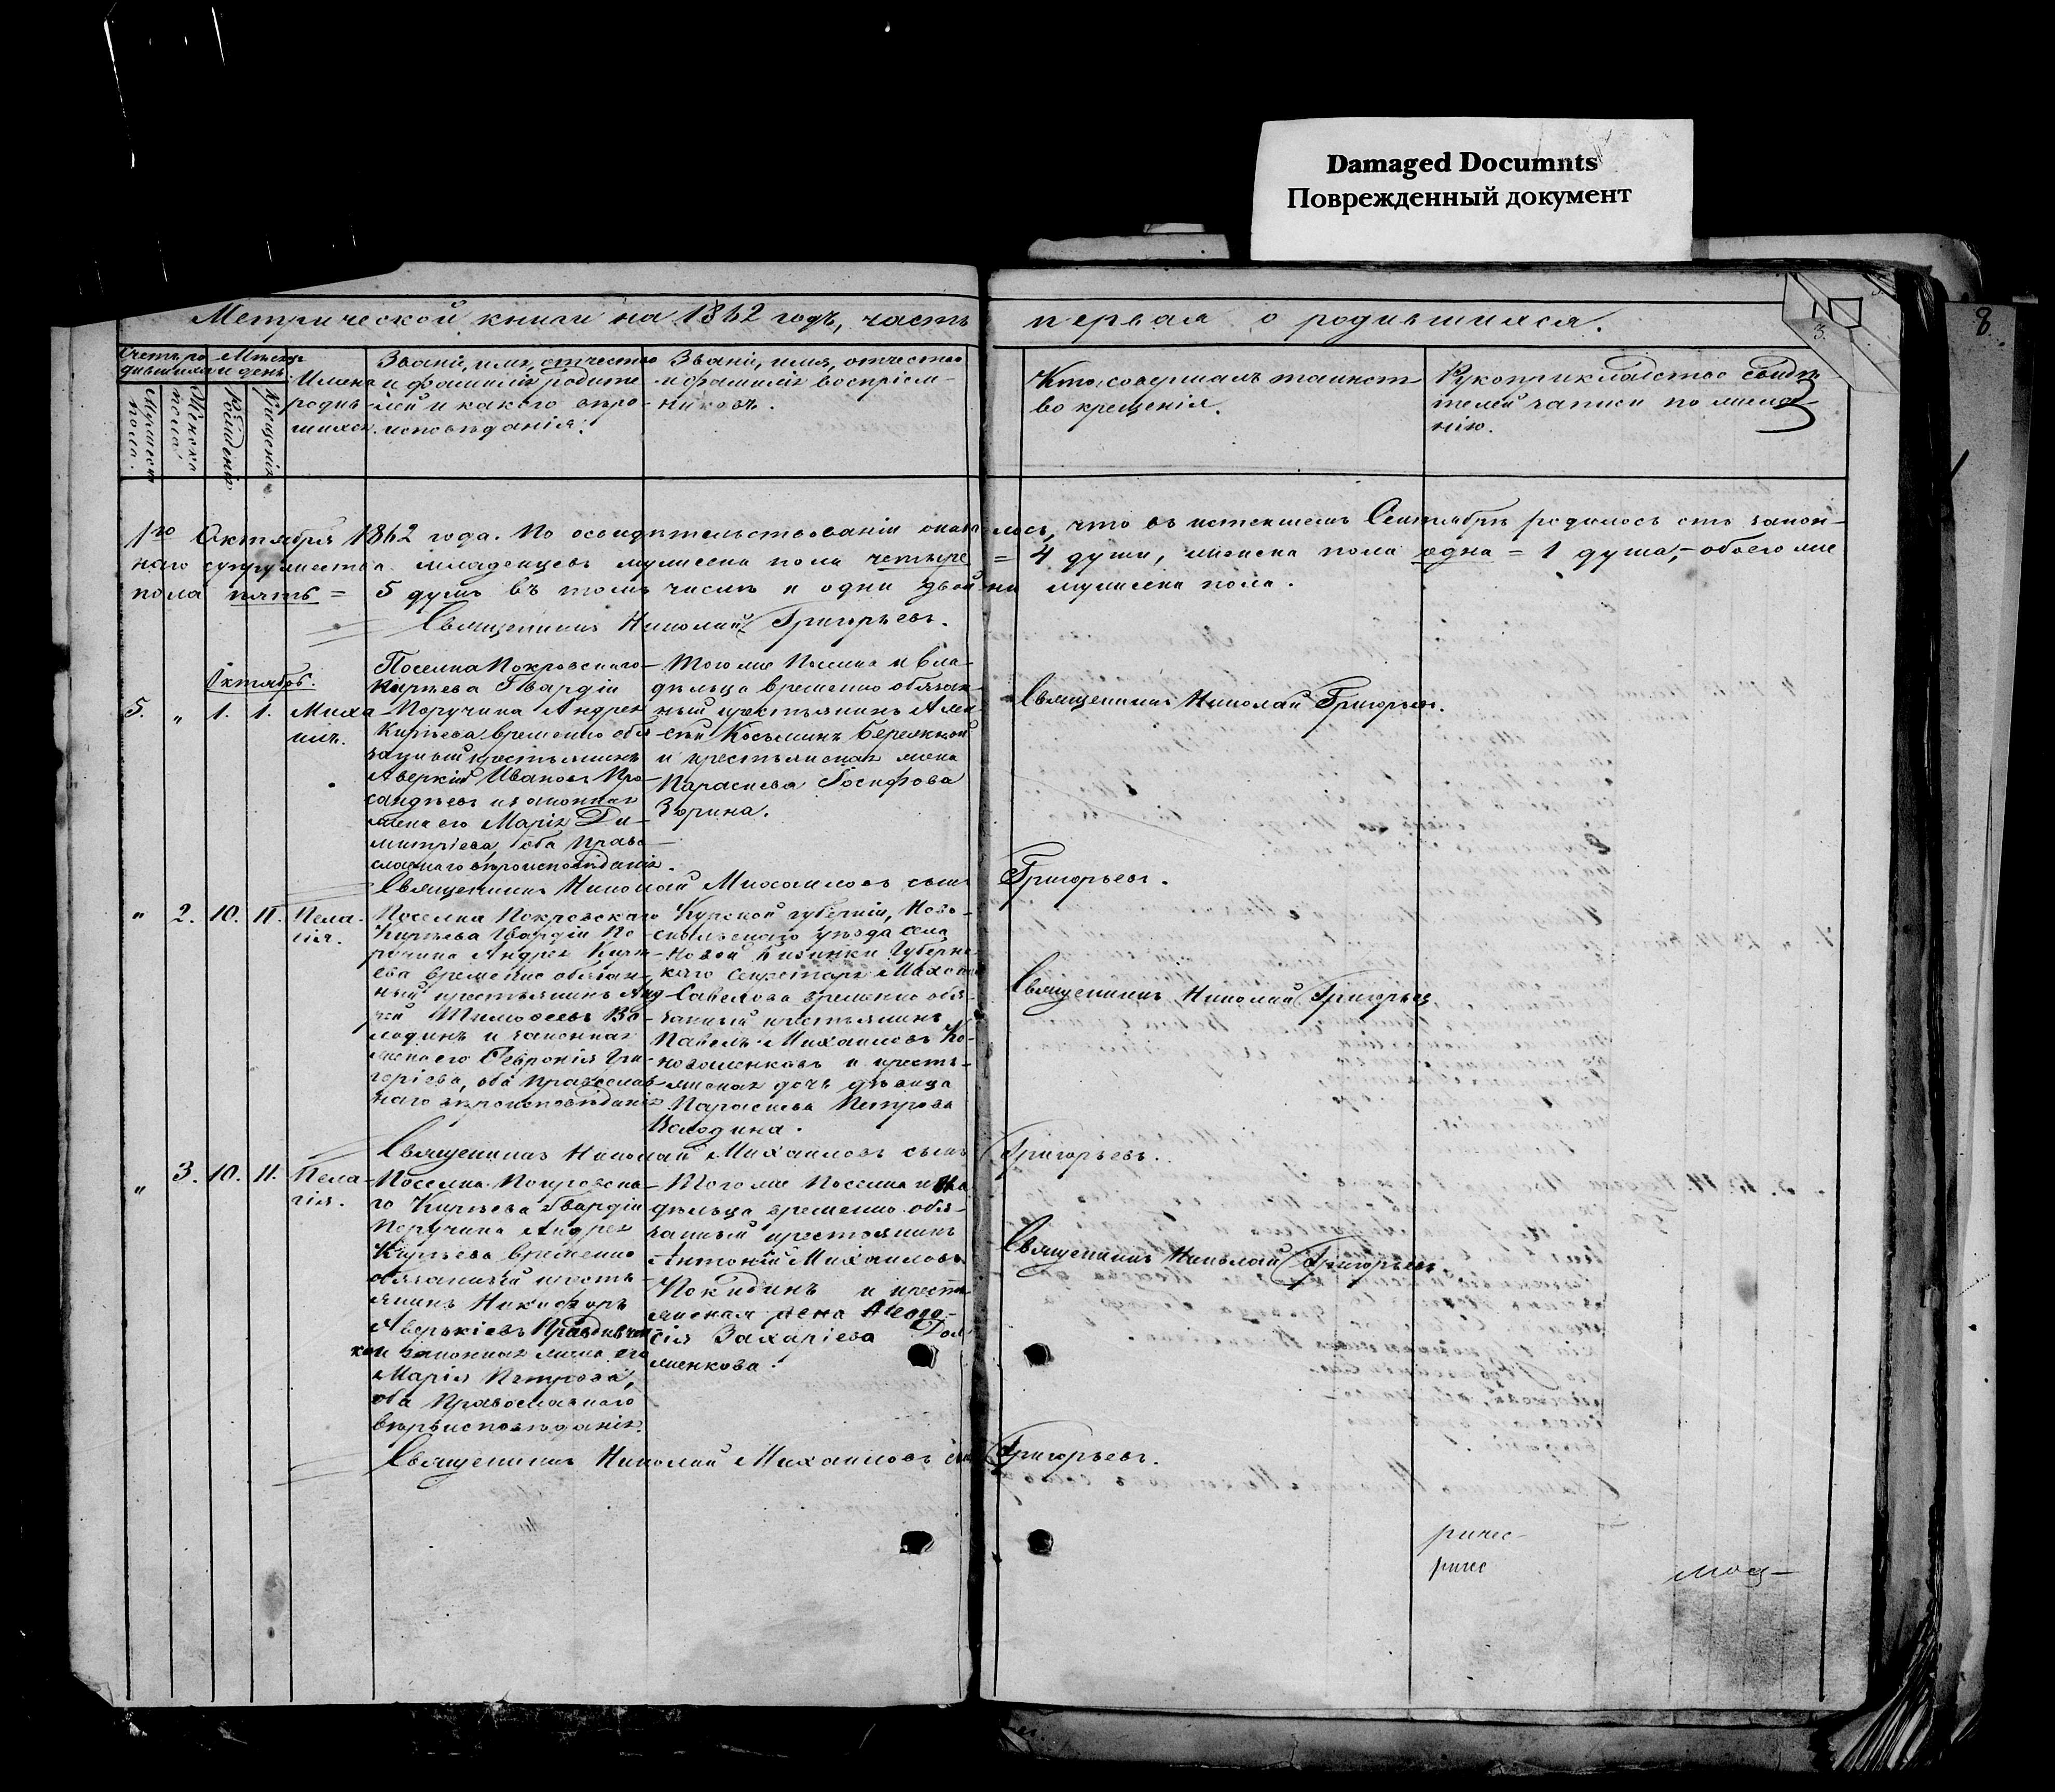 Damaged Documnts
Поврежденный документ
8.
3.
Метрической книги на 1862 годъ, часть первая о родившихся.
Счетъ родившихся
Мѣсяцъ и день
Мужеска пола.
Женска пола.
Рожденія
Крещенія
Имена родившихся.
Званіе, имя, отчество
и фамилія родите
лей и какого вѣро-
исповѣданія.
Званіе, имя, отчество
и фамилія воспріем-
никовъ.
Кто совершалъ таинст-
во крещенія.
Рукоприкладство свидѣ
телей записи по жела-
нію.
1го Октября 1862 года. По освидѣтельствованіи оказалось, что въ истекшемъ Сентябрѣ родилось отъ закон-
наго супружества младенцевъ мужеска пола четыре = 4 души, женска пола одна = 1 душа, – обоего же
пола пять = 5 душъ въ томъ числѣ и одни двойни мужеска пола.
Священникъ Николай Григорьевъ.
Октябрь.
5. „ 1. 1. Миха
илъ.
Поселка Покровскаго-
Кирѣева Гвардіи
Поручика Андрея
Кирѣева временно обя
занный крестьянинъ
Аверкій Ивановъ
и законная
жена его Марія Ди-
митріева, оба Право-
славнаго вѣроисповѣданія.
Того же Поселка и Вла-
дѣльца временно обязан-
ный крестьянинъ Алек-
сѣй Косьминъ Бережной
и крестьянская жена
Параскева Іосифова
Зорина.
Священникъ Николай Григорьевъ.
Священникъ Николай Михаиловъ сынъ Григорьевъ.
„ 2. 10. 11. Пела-
гія.
Поселка Покровскаго
Кирѣева Гвардіи По
ручика Андрея Кирѣ
ева временно обязан-
ный крестьянинъ Анд
рей Тимоѳеевъ Во-
лодинъ и законная
жена его Февронія Гри-
горіева, оба Православ
наго вѣроисповѣданія.
Курской губерніи, Ново-
скольскаго уѣзда села
Новой Губернс
каго Секретаря Михаила
Савелова временно обя-
занный крестьянинъ
Павелъ Михаиловъ Ко-
новаленковъ и кресть-
янская дочь дѣвица
Параскева Петрова
Володина.
Священникъ Николай Григорьевъ
Священникъ Николай Михаиловъ сынъ Григорьевъ.
„ 3. 10. 11. Пела-
гія.
Поселка Покровска-
го Кирѣева Гвардіи
Поручика Андрея
Кирѣева временно
обязанный кресть-
янинъ Никифоръ
Аверкіевъ
и законная жена его
Марія Петрова,
оба Православнаго
вѣроисповѣданія.
Того же Поселка и Вла
дѣльца временно обя-
занный крестьянинъ
Антоній Михаиловъ
Покидинъ и крестья
янская жена Ѳеодо-
сія Захаріева Дол
женкова.
Священникъ Николай Григорьевъ
Священникъ Николай Михаиловъ сынъ Григорьевъ.
ричес-
ричес